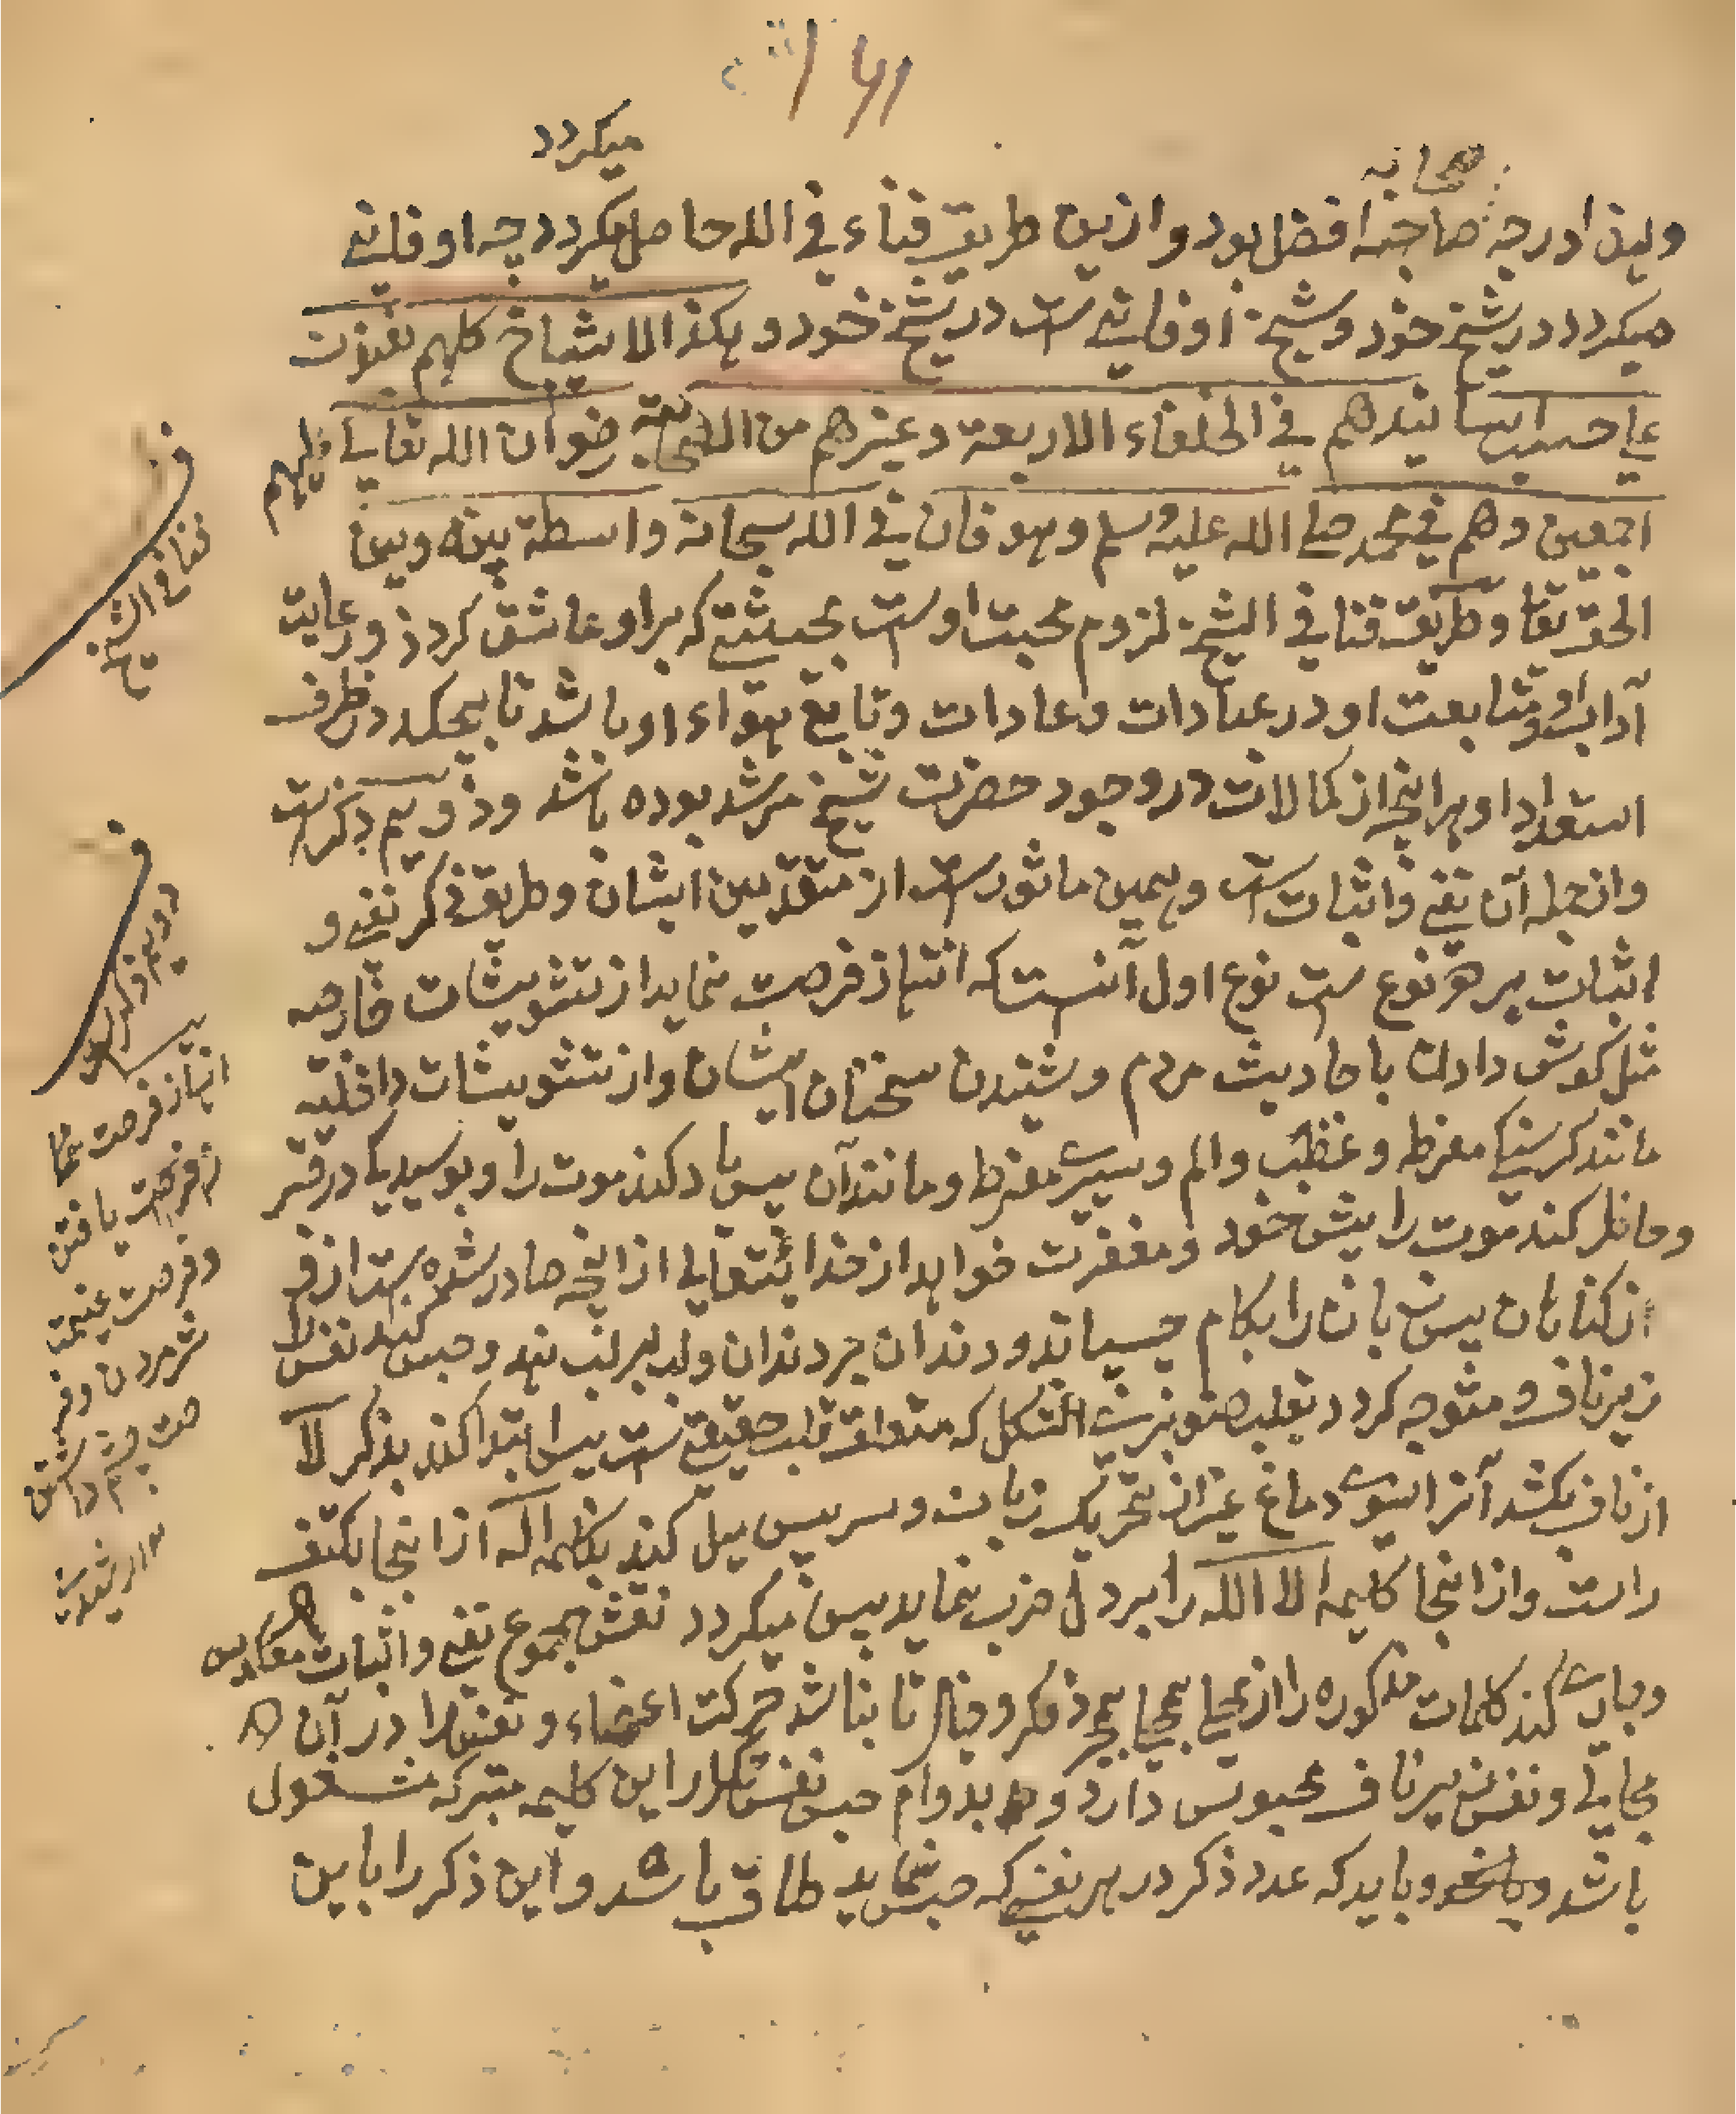 ۱۶۱
میکردد
صحابه
وبدین درجه صاحبه افضل بود و ازین طریق فناء فی الله حاصل میکردد چه او فانی
میکردد در شیخ خود و شیخ او فانی ست در شیخ خود و هکذا الاشیاخ کلهم یفنون
علی حسب اسانیدهم فی الخلفاء الاربعة وغیرهم من الصحابة رضوان الله تعالی علیهم
اجمعین وهم فی محمد صلی الله علیه وسلم وهو فان فی الله سبحانه واسطة بینه وبین
الحق تعا وطریق فنا فی الشیخ لزوم محبت اوست بحیثیتی که بر او عاشق کردد ورعایت
آداب او ومتابعت او در عبادات وعادات وتابع هواء او باشد تا بچکد در ظرف
استعداد او هر آنچه از کمالات در وجود حضرت شیخ مرشد بوده باشد ودویم ذکرست
وازجمله آن نفی واثبات ست وهمین ماثورست از متقدمین ایشان وطریق ذکر نفی و
اثبات بر دو نوع ست نوع اول آنست که انتهاز فرصت نماید از تشویشات خارجه
مثل کوش دادن باحادیث مردم وشنیدن سخنان ایشان واز تشویشات داخلیه
مانند کرسنکی مفرط وغضب والم وسیری مفرط ومانند آن پس یاد کند موت را وبوسیدیکی در قبر
وحاضر کند موت را پیش خود ومغفرت خواهد از خدایتعالی از آنچه صادر شده ست از و
از کناهان پس زبان را بکام چسپاند ودندان بر دندان ولب بر لب نهد وحبس کند نفس را
زیر ناف ومتوجه کردد بقلب صنوبری الشکل که متعلق قلب حقیقی ست پس ابتدا کند بذکر لا
از ناف بکشد آنرا بسوی دماغ غیر از تحریک زبان وسر پس میل کند بکلمه اله از انجا بکتف
راست واز انجا کلیمه الا الله را بر دل ضرب نماید پس میکردد نقش مجموع نفی واثبات معکوس
وجاری کند کلمات مذکوره را از محلی بمحلی بمجرد فکر وخیال تا نباشد حرکت اعضاء ونفس را در آن
مجالی ونفس زیر ناف محبوس دارد و بدوام حبس نفس تکرار این کلیمه متبرکه مشغول
باشد وباید که عدد ذکر در هر نفسی که حبس نماید طاق باشد واین ذکر را باین
فنا فی الشیخ
دویم ذکر
انتهاز فرصت نما
فرصت یافتن
وفرصت غنیمت
شمردن وفر
صت چشم داشتن